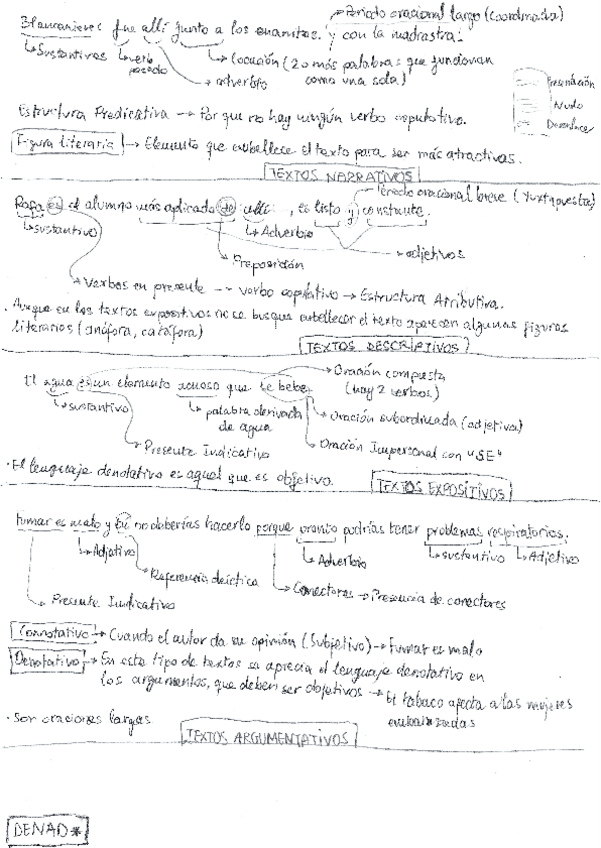 Periodo oracional largo (Coordinada)
Blancanieves fue allí junto a los enanitos y con la madrastra.
Sustantivos
verbo pasado
adverbio
Locución (2 o más palabras que funcionan como una sola)
Presentación
Nudo
Desenlace
Estructura Predicativa → Porque no hay ningún verbo copulativo.
Figura literaria → Elemento que embellece el texto para ser más atractivos.
TEXTOS NARRATIVOS
Periodo oracional breve (Yuxtapuesta)
Rafa es el alumno más aplicado de allí, es listo y constante.
sustantivo
Adverbio
adjetivos
Preposición
Verbos en presente -- verbo copulativo → Estructura Atributiva.
· Aunque en los textos expositivos no se busque embellecer el texto aparecen algunas figuras
literarios (anáfora, catáfora)
TEXTOS DESCRIPTIVOS
Oración compuesta
(hay 2 verbos)
El agua es un elemento acuoso que se bebe.
sustantivo
palabra derivada
de agua
Oración subordinada (adjetiva)
Presente Indicativo
Oración Impersonal con "SE"
· El lenguaje denotativo es aquel que es objetivo.
TEXTOS EXPOSITIVOS
Fumar es malo y tú no deberías hacerlo porque pronto podrías tener problemas respiratorios.
Adjetivo
Adverbio
sustantivo
Adjetivo
Referencia deíctica
Conectores → Presencia de conectores
Presente Indicativo
Connotativo → Cuando el autor da su opinión (Subjetivo) → Fumar es malo
Denotativo → En este tipo de textos se aprecia el lenguaje denotativo en
los argumentos, que deben ser objetivos → El tabaco afecta a las mujeres
embarazadas
· Son oraciones largas
TEXTOS ARGUMENTATIVOS
DENAD*